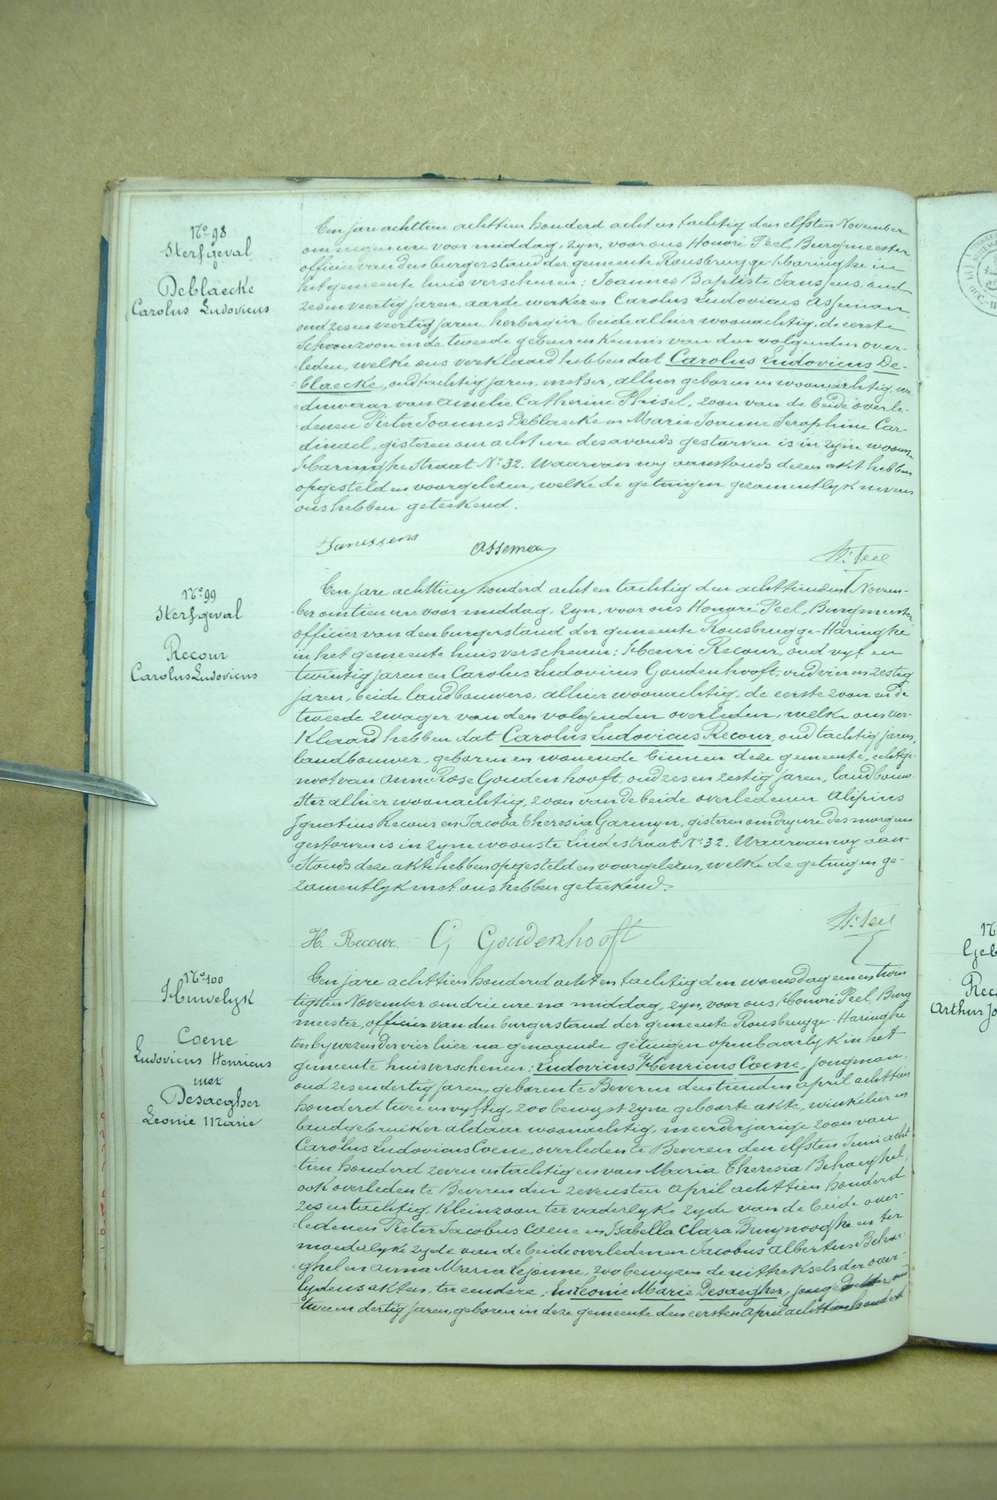 No 98
Sterfgeval
Deblaecke
Carolus Ludovicus
Een jare achttien achttien honderd acht en tachtig den elfsten November
om negen ure voor middag, zyn, voor ons Honoré Feel Burgmeester
officier van den burgerstand der gemeente Rousbrugge-Haringhe in
het gemeente huis verschenen: Joannes Baptiste Janssens, oud
zes en veertig jaren, aardewerker en Carolus Ludovicus Asseman
oud zes en veertig jaren herbergier beide alhier woonachtig, de eerste
schoonzoon en de tweede gebuur en kennis van den volgenden over-
leden, welke ons verklaard hebben dat Carolus Ludovicus De-
blaecke, oud tachtig jaren, metser, alhier geboren en woonachtig, we
duwaar van Amelie Catherine, zoon van de beide overle-
denen Pieter Joannes Deblaecke en Marie Joanne Seraphine Car-
dinael, gisteren om acht ure des avonds gestorven is in zyne woonste
Haringhe Straat No 32. Waarvan wy aanstonds deze akt hebben
opgesteld en voorgelezen, welke de getuigen gezamentlyk nevens
ons hebben geteekend.
Janssens Asseman Hré Feel
No 99
Sterfgeval
Recour
Carolus Ludovicus
Een jare achttien honderd acht en tachtig den achttienden Novem-
ber om tien ure voor middag, zyn, voor ons Honoré Feel, Burgmeester
officier van den burgerstand der gemeente Rousbrugge-Haringhe
in het gemeente huis verschenen: Henri Recour, oud vyf en
twintig jaren en Carolus Ludovicus Goudenhooft, oud vier en zestig
jaren, beide landbouwers, alhier woonachtig, de eerste zoon en de
tweede zwager van den volgenden overleden, welke ons ver-
klaard hebben dat Carolus Ludovicus Recour, oud tachtig jaren,
landbouwer, geboren en wonende binnen deze gemeente, echtge-
noot van Anne Rose Goudenhooft, oud zes en zestig jaren, landbouw-
ster alhier woonachtig, zoon van de beide overledenen Alipius
Ignatius Recour en Jacoba Theresia Garmyn, gisteren om dry ure des morgens
gestorven is in zyne woonste Lindestraat No 32. Waarvan wy aan-
stonds deze akte hebben opgesteld en voorgelezen, welke de getuigen ge-
zamentlyk met ons hebben geteekend.
H. Recour C. Goudenhooft Hré Feel
No 100
Huwelyk
Coene
Ludovicus Henricus
met
Desaegher
Leonie Marie
Een jare achttien honderd acht en tachtig den woensdag een en twin
tigsten November om drie ure na middag, zyn, voor ons Honoré Feel, Burg
meester, officier van den burgerstand der gemeente Rousbrugge-Haringhe
ten bywezen der vier hier na genoemde getuigen openbaarlyk in het
gemeente huis verschenen: Ludovicus Henricus Coene, jongman,
oud zes en dertig jaren, geboren te Beveren den tienden April achttien
honderd twee en vyftig, zoo bewyst zyne geboorte akte, winkelier en
landgebruiker aldaar woonachtig, meerderjarige zoon van
Carolus Ludovicus Coene, overleden te Beveren den elfsten Juni acht
tien honderd zeven en tachtig en van Maria Theresia Behaeghel,
ook overleden te Beveren den zevensten April achttien honderd
zes en tachtig, kleinzoon ter vaderlyke zyde van de beide over-
ledenen Pieter Jacobus Coene en Isabella Clara Bruynooghe en ter
moederlyke zyde van de beide overledenen Jacobus Albertus Behae-
ghel en Anna Maria Lejeune, zoo bewyzen de uittreksels der over-
lydens akten, ter eendere, en Leonie Marie Desaegher, jonge Dochter oud
twee en dertig jaren, geboren in deze gemeente den eersten April achttien honderd
Geb
Rec
Arthur Jo